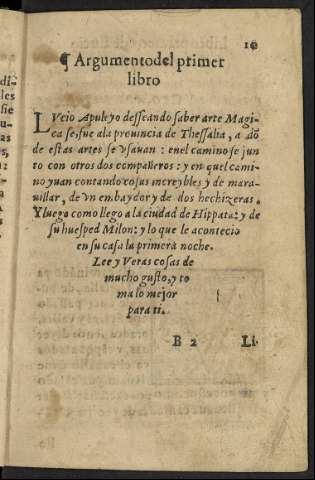 10
¶ Argumento del primer
libro
LVcio Apuleyo desseando saber arte Magi-
ca se, fue a la prouincia de Thessalia, a dõ
de estas artes se vsauan: en el camino se jun
to con otros dos compañeros: y en quel cami-
no yuan contando cosas increybles y de mara-
uillar, de vn embaydor y de dos hechizeras.
Y luego como llego a la ciudad de Hippata: y de
su huesped Milon: y lo que le acontecio
en su casa la primera noche.
Lee y Veras cosas de
mucho gusto, y to
ma lo mejor
para ti.
B 2 Li.
di-
les
sie
u-
as
s,